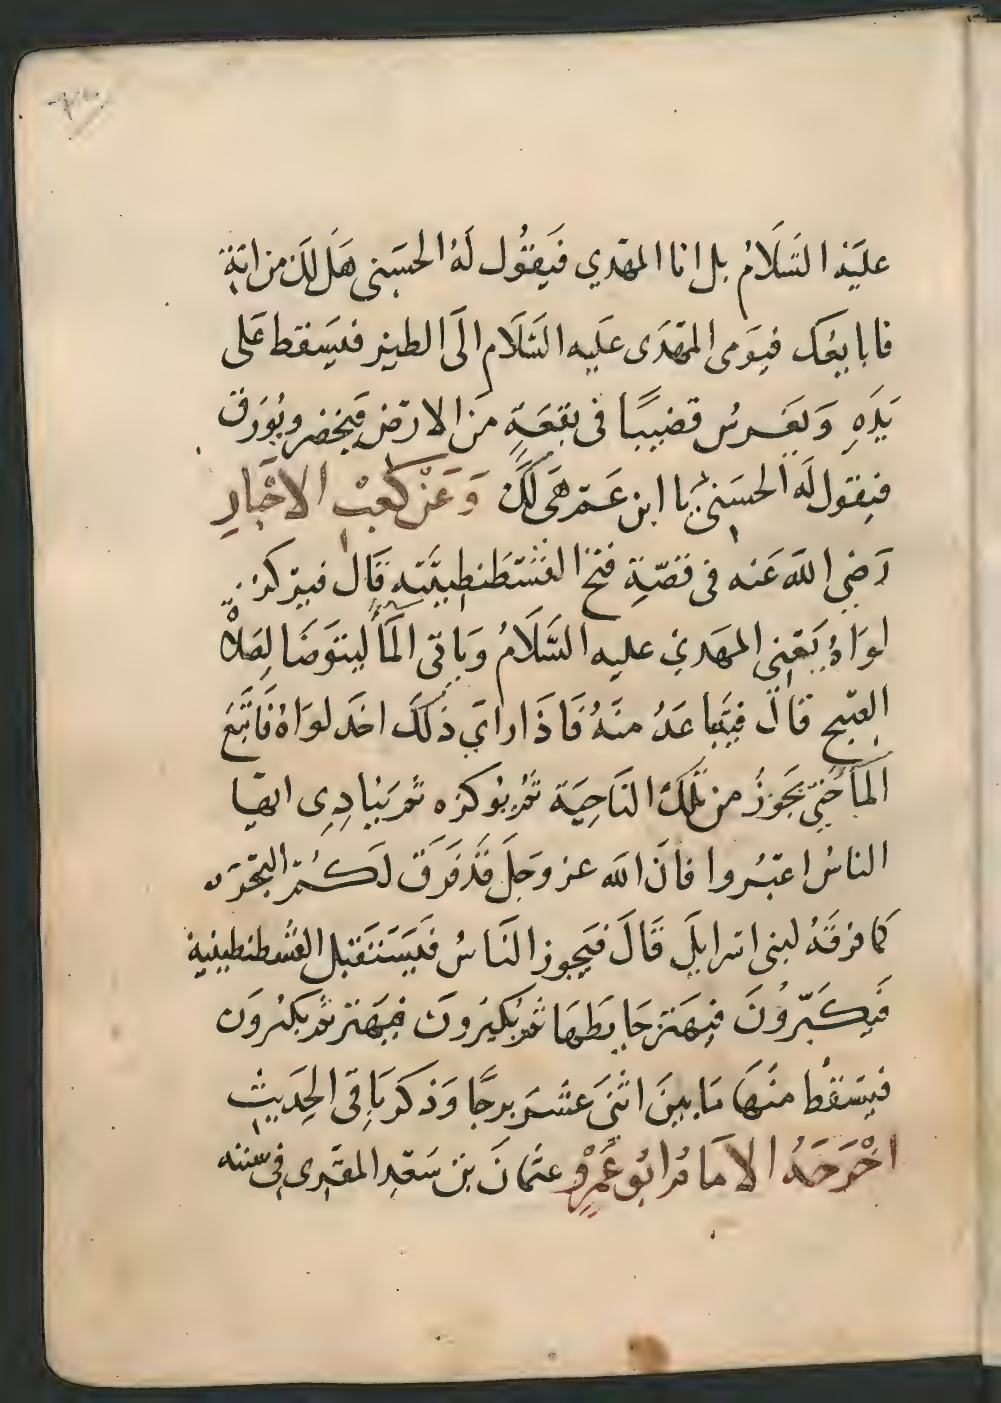 عليه السَّلَامُ بل انا المهدي فَيَقُول لَهُ الحسَني هَل لك من ايَةٍ
فابايعُك فيومى المهَدى عليه السَّلَام الىَ الطير فيَسقط عَلى
يَدِهِ وَيَغرسُ قضيبًا فى بقعَةٍ مَن الارَض فيَخضر ويُورَق
فيقول لَه الحسَنى يا ابن عَم هَى لَكَ وَعَنْ كَعبْ الاحَبارِ
رَضي الله عَنه فى قصّةِ فتح القسْطَنطِينيَّه قَال فيَركز
لوَاهُ يَعَني المهَدي عليه السَّلَامُ وَيَاتى المَأَ ليتوَضَا لِصَلاةْ
الصّبح قال فيَتَباعَدُ منهُ فَاذَا راي ذَلكَ اخَد لوَاهُ فَاتَّبَعَ
المَأَ حَتيّ يَجَوزُ من تلكَ النَاحِيَة ثم يوكزه ثم يَنادِى ايّها
الناسُ اعتبُروا فانَ الله عز وجَل قد فَرَق لَكُم البَحَرَ
كما فرقَهُ لبنى اسرايلَ قَالَ فيَجوز النَاسُ فَيَسَتقبل القسُطنطينية
فَيكَبّرُونَ فيهَتز حَايطَهَا ثم يُكبرَونَ فيَهَتز ثم يكبرَون
فيسَقُط منهَا مَا بينَ اثنىَ عشَر برجًا وَذكر بَاقى الحَدِيثْ
اخْرَجَهُ الامَام ابُو عَمْرٍو عثمانَ بن سَعَيد المقَرى فى سننه